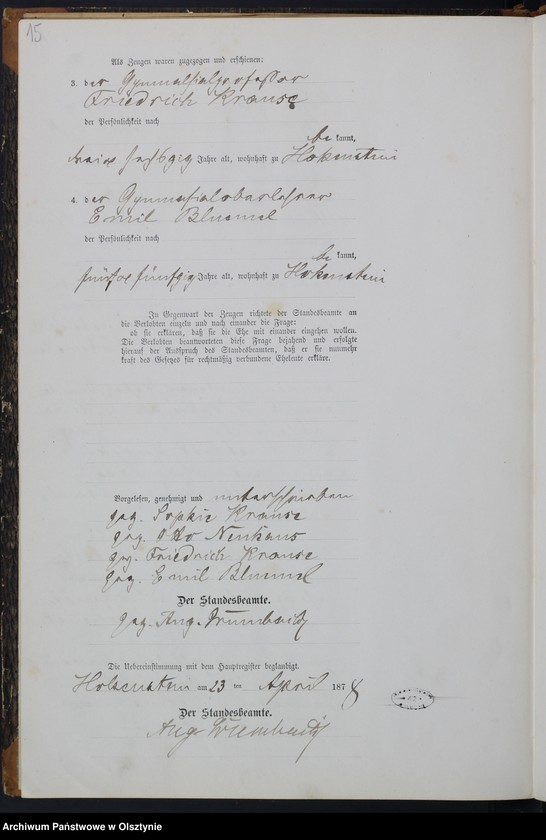 15
Als Zeugen waren zugezogen und erschienen:
3. der Gymnasialprofessor
Friedrich Krause
der Persönlichkeit nach
be kannt,
sechszig Jahre alt, wohnhaft zu Hohenstein
4. der Gymnasialoberlehrer
Emil Blümel
der Persönlichkeit nach
be kannt,
fünfzig Jahre alt, wohnhaft zu Hohenstein
In Gegenwart der Zeugen richtete der Standesbeamte an
die Verlobten einzeln und nach einander die Frage:
ob sie erklären, daß sie die Ehe mit einander eingehen wollen.
Die Verlobten beantworteten diese Frage bejahend und erfolgte
hierauf der Ausspruch des Standesbeamten, daß er sie nunmehr
kraft des Gesetzes für rechtmäßig verbundene Eheleute erkläre.
Vorgelesen, genehmigt und unterschrieben
gez. Sophie Krause
gez. Otto Neuhaus
gez. Friedrich Krause
gez. Emil Blümel
Der Standesbeamte.
gez. Aug.
Die Uebereinstimmung mit dem Hauptregister beglaubigt.
Hohenstein am 23 ten April 1878
Der Standesbeamte.
Aug
Archiwum Państwowe w Olsztynie